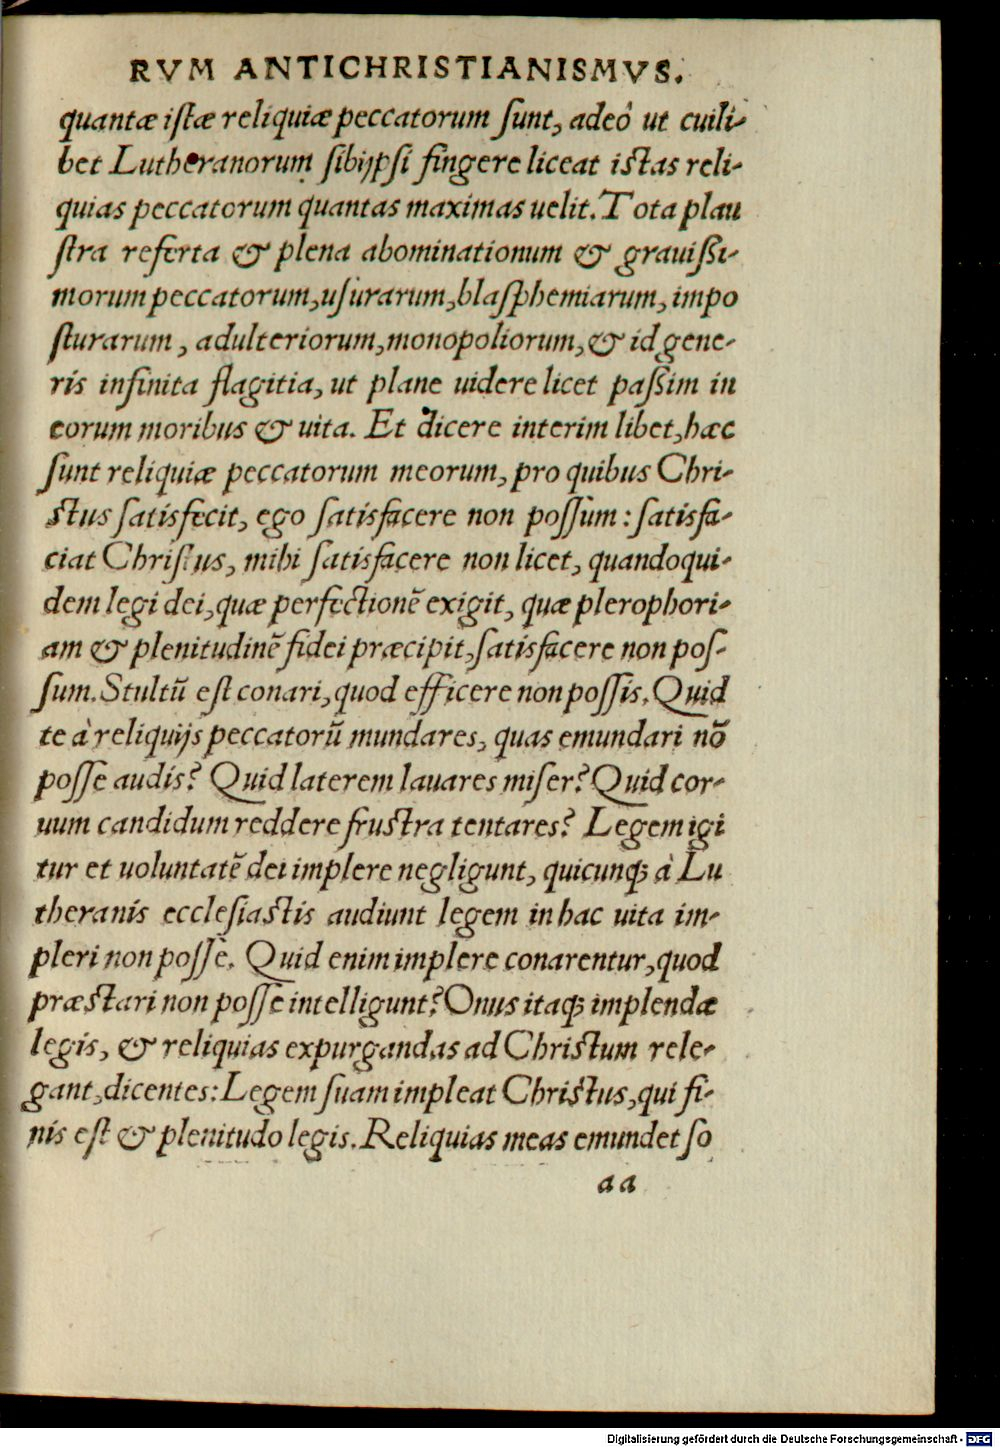 RVM ANTICHRISTIANISMVS.
quantæ istæ reliquiæ peccatorum sunt, adeò ut cuili-
bet Lutheranorum sibijpsi fingere liceat istas reli-
quias peccatorum quantas maximas uelit. Tota plau
stra referta & plena abominationum & grauißi-
morum peccatorum, usurarum, blasphemiarum, impo
sturarum, adulteriorum, monopoliorum, & id gene-
ris infinita flagitia, ut plane uidere licet paßim in
eorum moribus & uita. Et dicere interim libet, hæc
sunt reliquiæ peccatorum meorum, pro quibus Chri-
stus satisfecit, ego satisfacere non possum: satisfa-
ciat Christus, mihi satisfacere non licet, quandoqui-
dem legi dei, quæ perfectionē exigit, quæ plerophori-
am & plenitudinē fidei præcipit, satisfacere non pos-
sum. Stultū est conari, quod efficere non possis. Quid
te à reliquijs peccatorū mundares, quas emundari nō
posse audis? Quid laterem lauares miser? Quid cor-
uum candidum reddere frustra tentares? Legem igi
tur et uoluntatē dei implere negligunt, quicunq; à Lu
theranis ecclesiastis audiunt legem in hac uita im-
pleri non posse. Quid enim implere conarentur, quod
præstari non posse intelligunt? Onus itaq; implendæ
legis, & reliquias expurgandas ad Christum rele-
gant, dicentes: Legem suam impleat Christus, qui fi-
nis est & plenitudo legis. Reliquias meas emundet so
aa
Digitalisierung gefördert durch die Deutsche Forschungsgemeinschaft - DFG